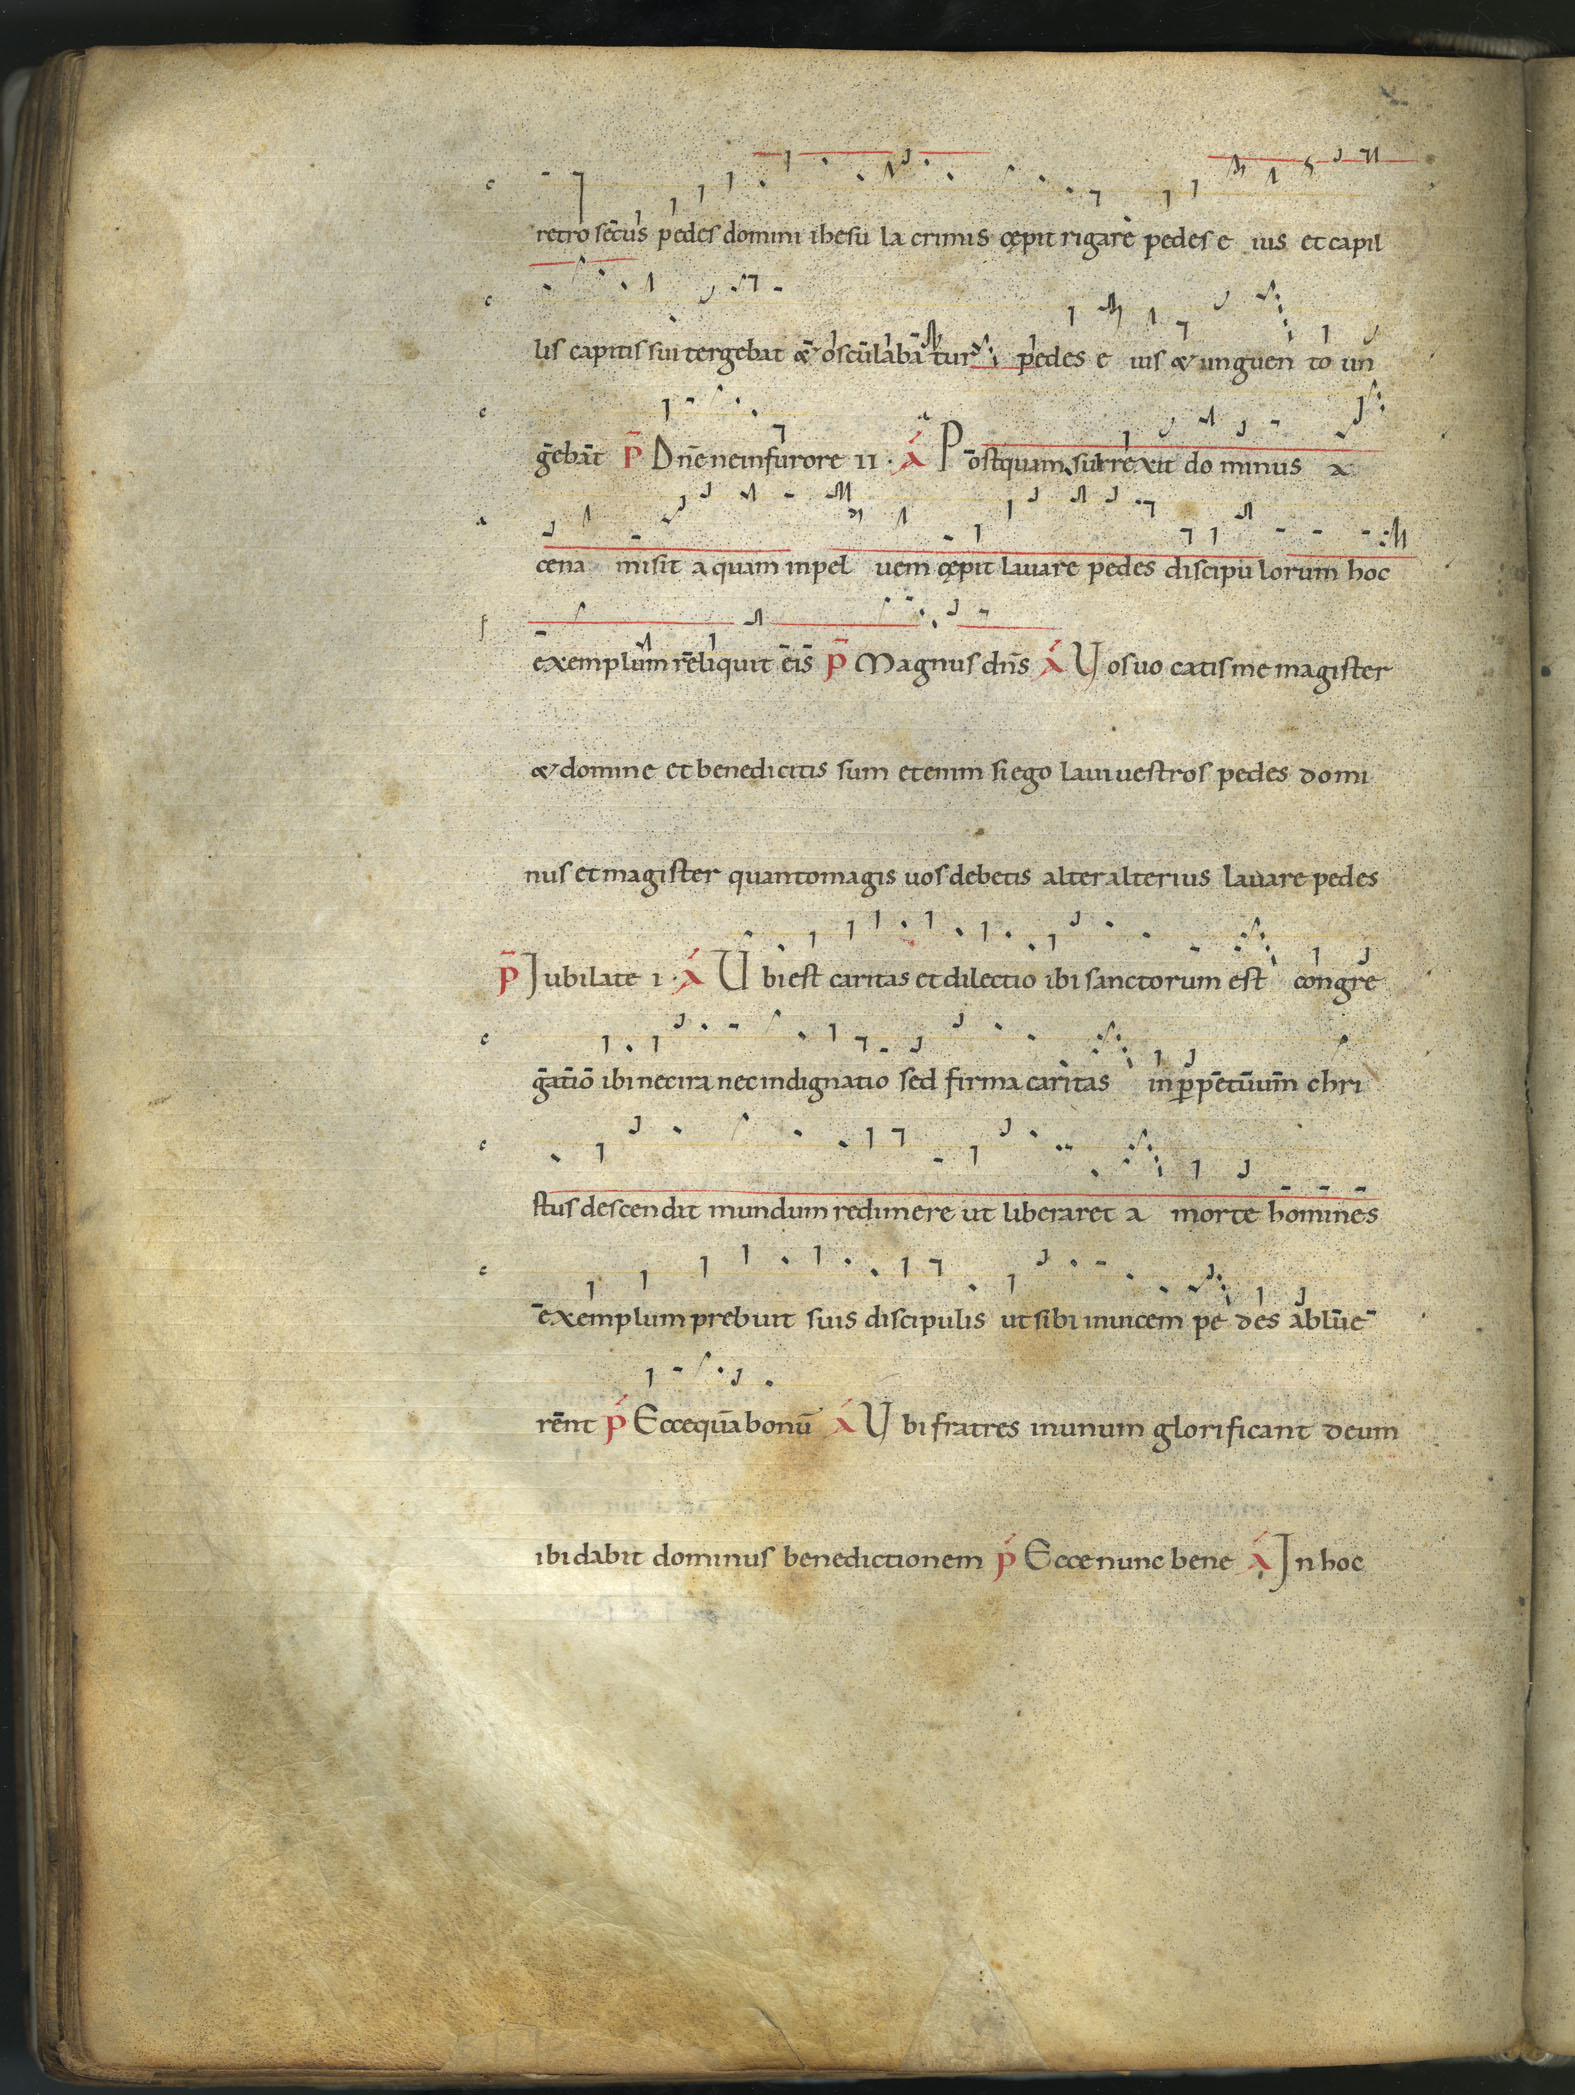 retro secus pedes domini ihesu la crimis cępit rigare pedes e ius et capil
lis capitis sui tergebat & osculaba tur pedes e ius & unguen to un
gebat P̄ Dn̄e ne in furore II · Á Postquam surrexit do minus a
cena misit aquam in pel uem cępit lauare pedes discipu lorum hoc
exemplum reliquit eis P̄ Magnus dn̄s Á Vos uo catis me magister
& domine et bene dicitis sum etenim si ego laui uestros pedes domi
nus et magister quanto magis uos debetis alter alterius lauare pedes
P̄ Jubilate I · Á Ubi est caritas et dilectio ibi sanctorum est congre
gatio ibi nec ira nec indignatio sed firma caritas in p̱petuum chri
stus descendit mundum redimere ut liberaret a morte homines
exemplum prebuit suis discipulis ut sibi inuicem pe des ablue
rent P̄ Ecce quā bonū Á Vbi fratres in unum glorificant deum
ibi dabit dominus benedictionem P̄ Ecce nunc bene Á In hoc